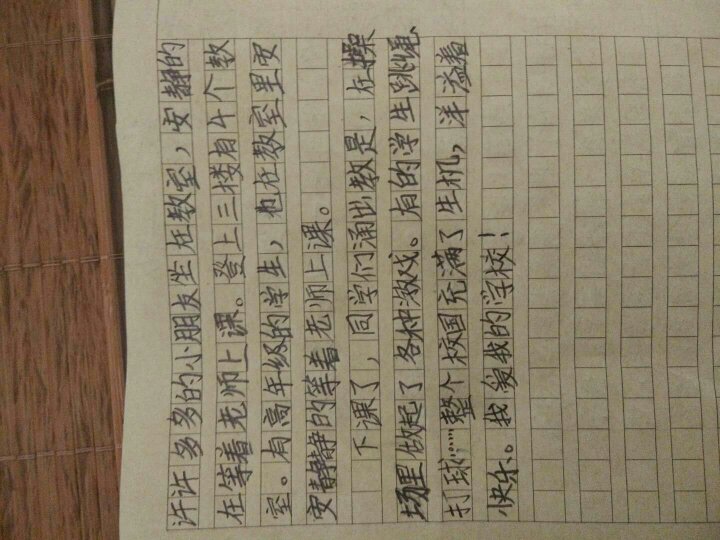 许许多多的小朋友坐在教室，安静的
在等着老师上课。登上三楼有4个教
室。有高年级的学生，也在教室里安
安静静的等着老师上课。
下课了，同学们涌出教是，在操
场里做起了各种激戏。有的学生跳绳、
打球……整个校国充满了生机，洋溢着
快乐。我爱我的学校！